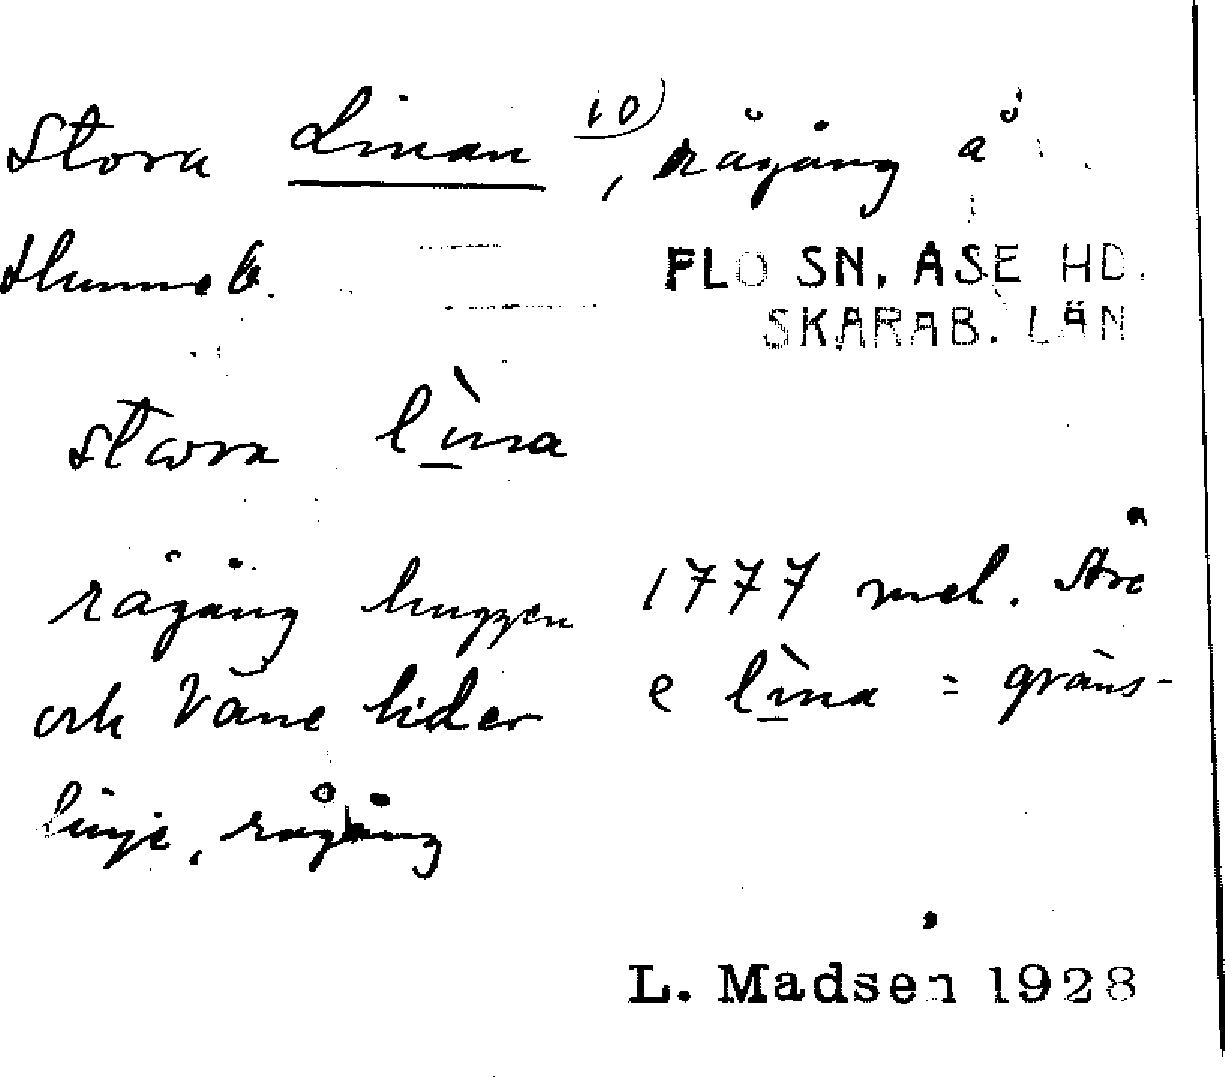 Stora Linan 10), rågång å
Hunneb.
FLO SN. ÅSE HD.
SKARAB. LÄN
stωra lìna
rågång huggen 1777 mel. Åse
och Väne hider e lìna = gräns-
linje, rågång
L. Madsen 1928